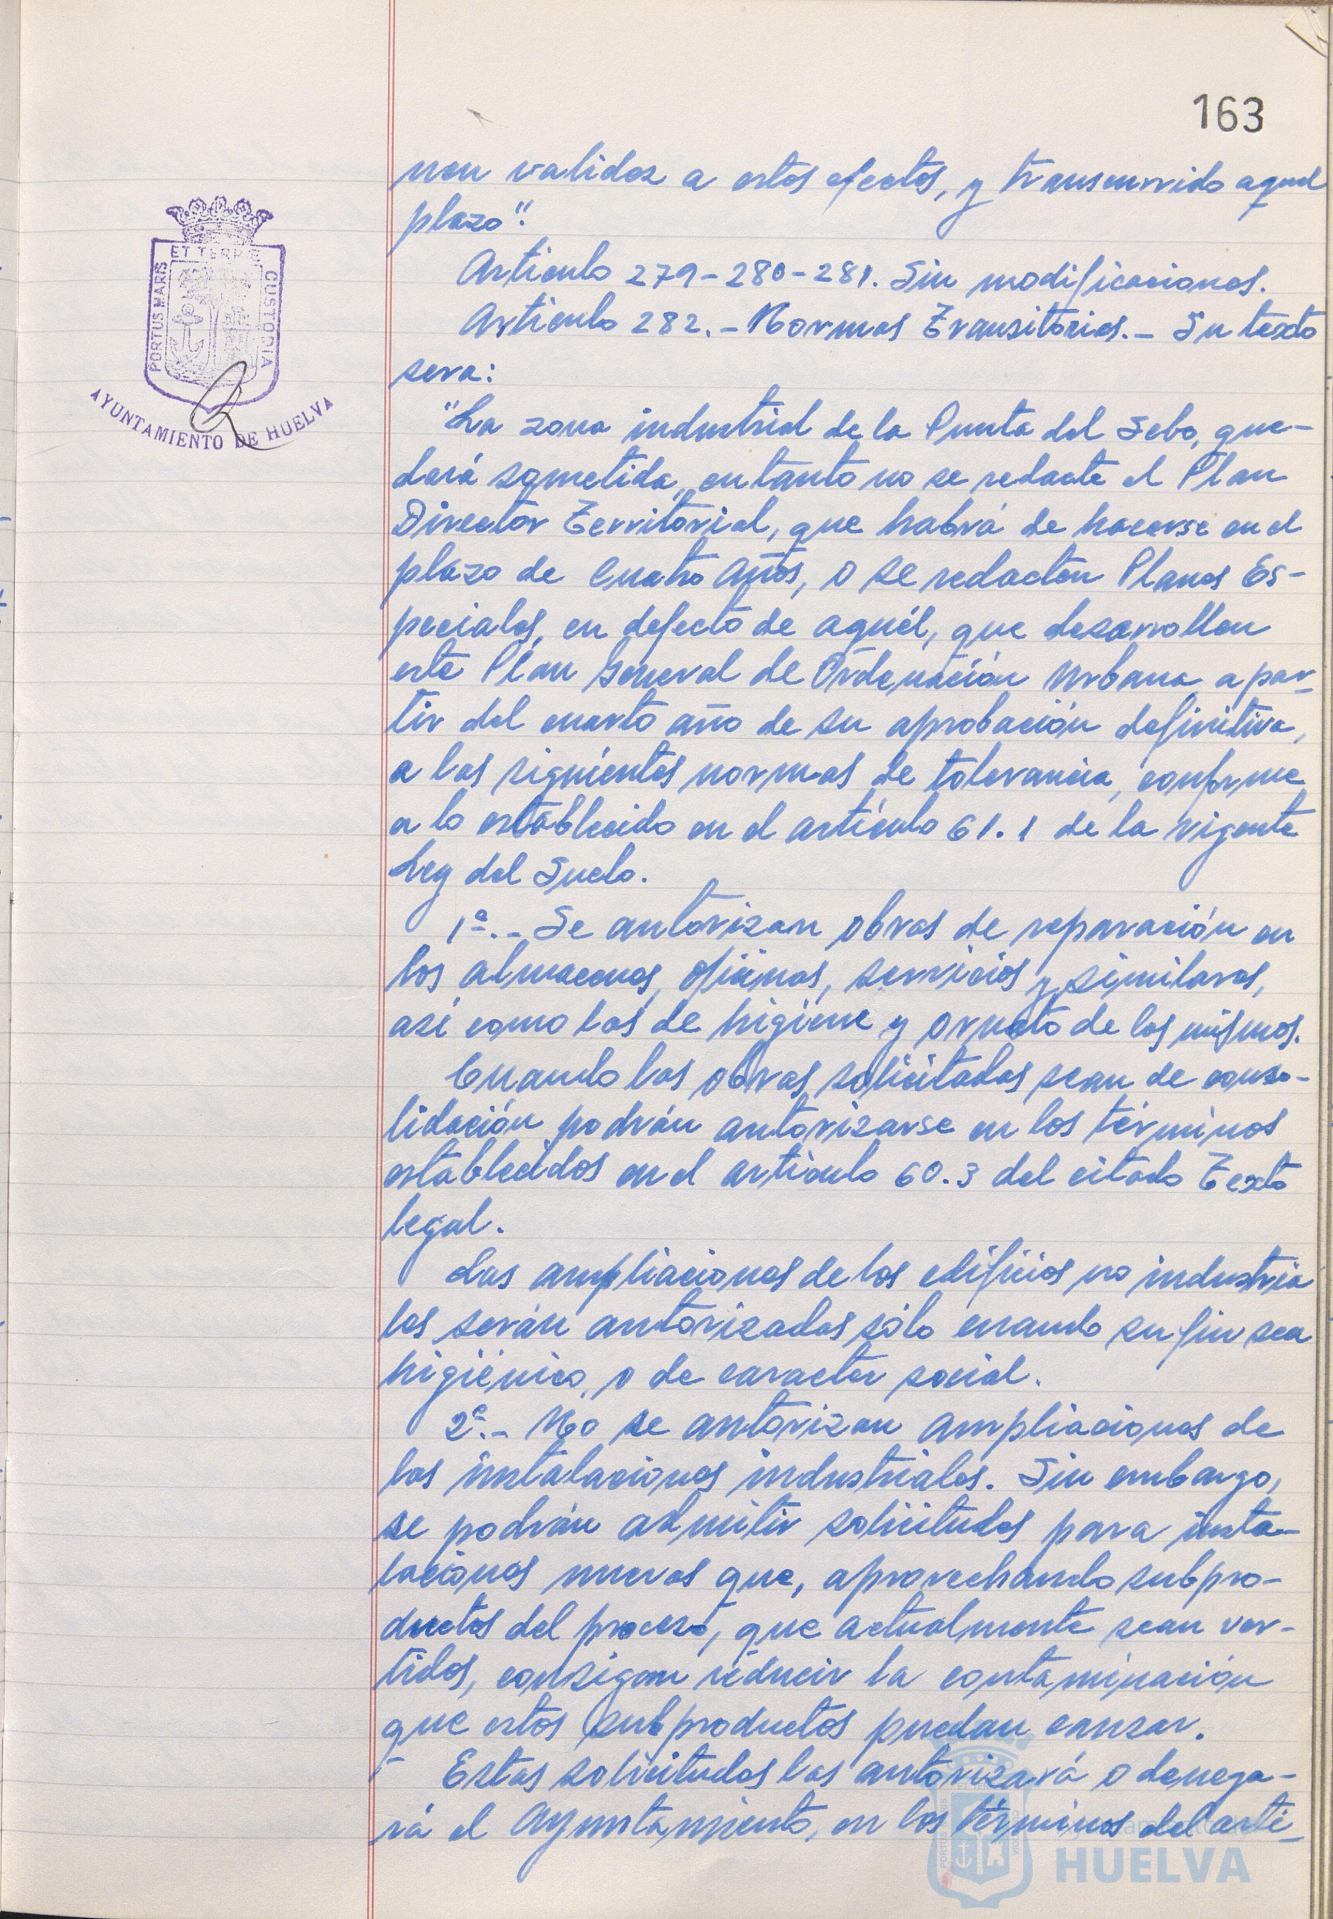 163
nen validez a estos efectos, y transcurrido aquel
plazo".
Articulo 279-280-281. Sin modificaciones.
Articulo 282.- Normas Transitorias.- Su texto
sera:
"La zona industrial de la Punta del Sebo, que-
dará sometida, en tanto no se redacte el Plan
Director Territorial, que habrá de hacerse en el
plazo de cuatro años, o se redacten Planes Es-
peciales, en defecto de aquél, que desarrollen
este Plan General de Ordenación Urbana a par-
tir del cuarto año de su aprobación definitiva,
a las siguientes normas de tolerancia, conforme
a lo establecido en el artículo 61.1 de la vigente
Ley del Suelo.
1ª.- Se autorizan obras de reparación en
los almacenes, oficinas, servicios y similares,
asi como las de higiene y ornato de los mismos.
Cuando las obras solicitadas sean de conso-
lidación podrán autorizarse en los términos
establecidos en el articulo 60.3 del citado Texto
legal.
Las ampliaciones de los edificios no industria
les serán autorizadas sólo cuando su fin sea
higiénico, o de caracter social.
2ª.- No se autorizan ampliaciones de
las instalaciones industriales. Sin embargo,
se podrán admitir solicitudes para insta-
laciones nuevas que, aprovechando subpro-
ductos del proceso, que actualmente sean ver-
tidos, consigan reducir la contaminación
que estos subproductos puedan causar.
Estas solicitudes las autorizará o denega-
rá el Ayuntamiento, en los términos del artí-
PORTUS MARIS
ET TERRE
CUSTODIA
AYUNTAMIENTO DE HUELVA
HUELVA